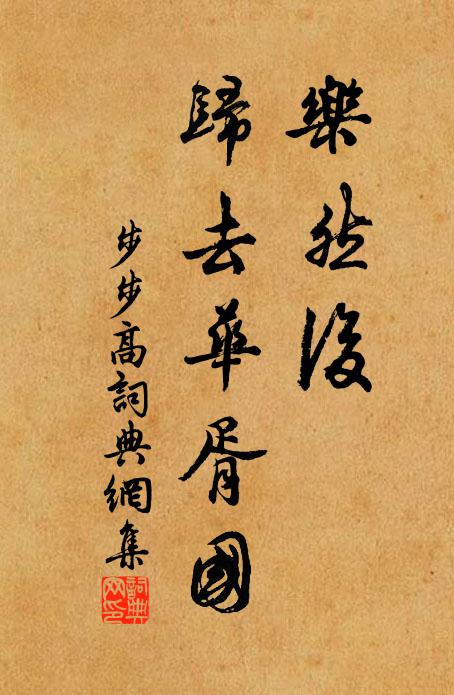 樂然後
歸去華胥國
步步高詞典網集
詞典
网印